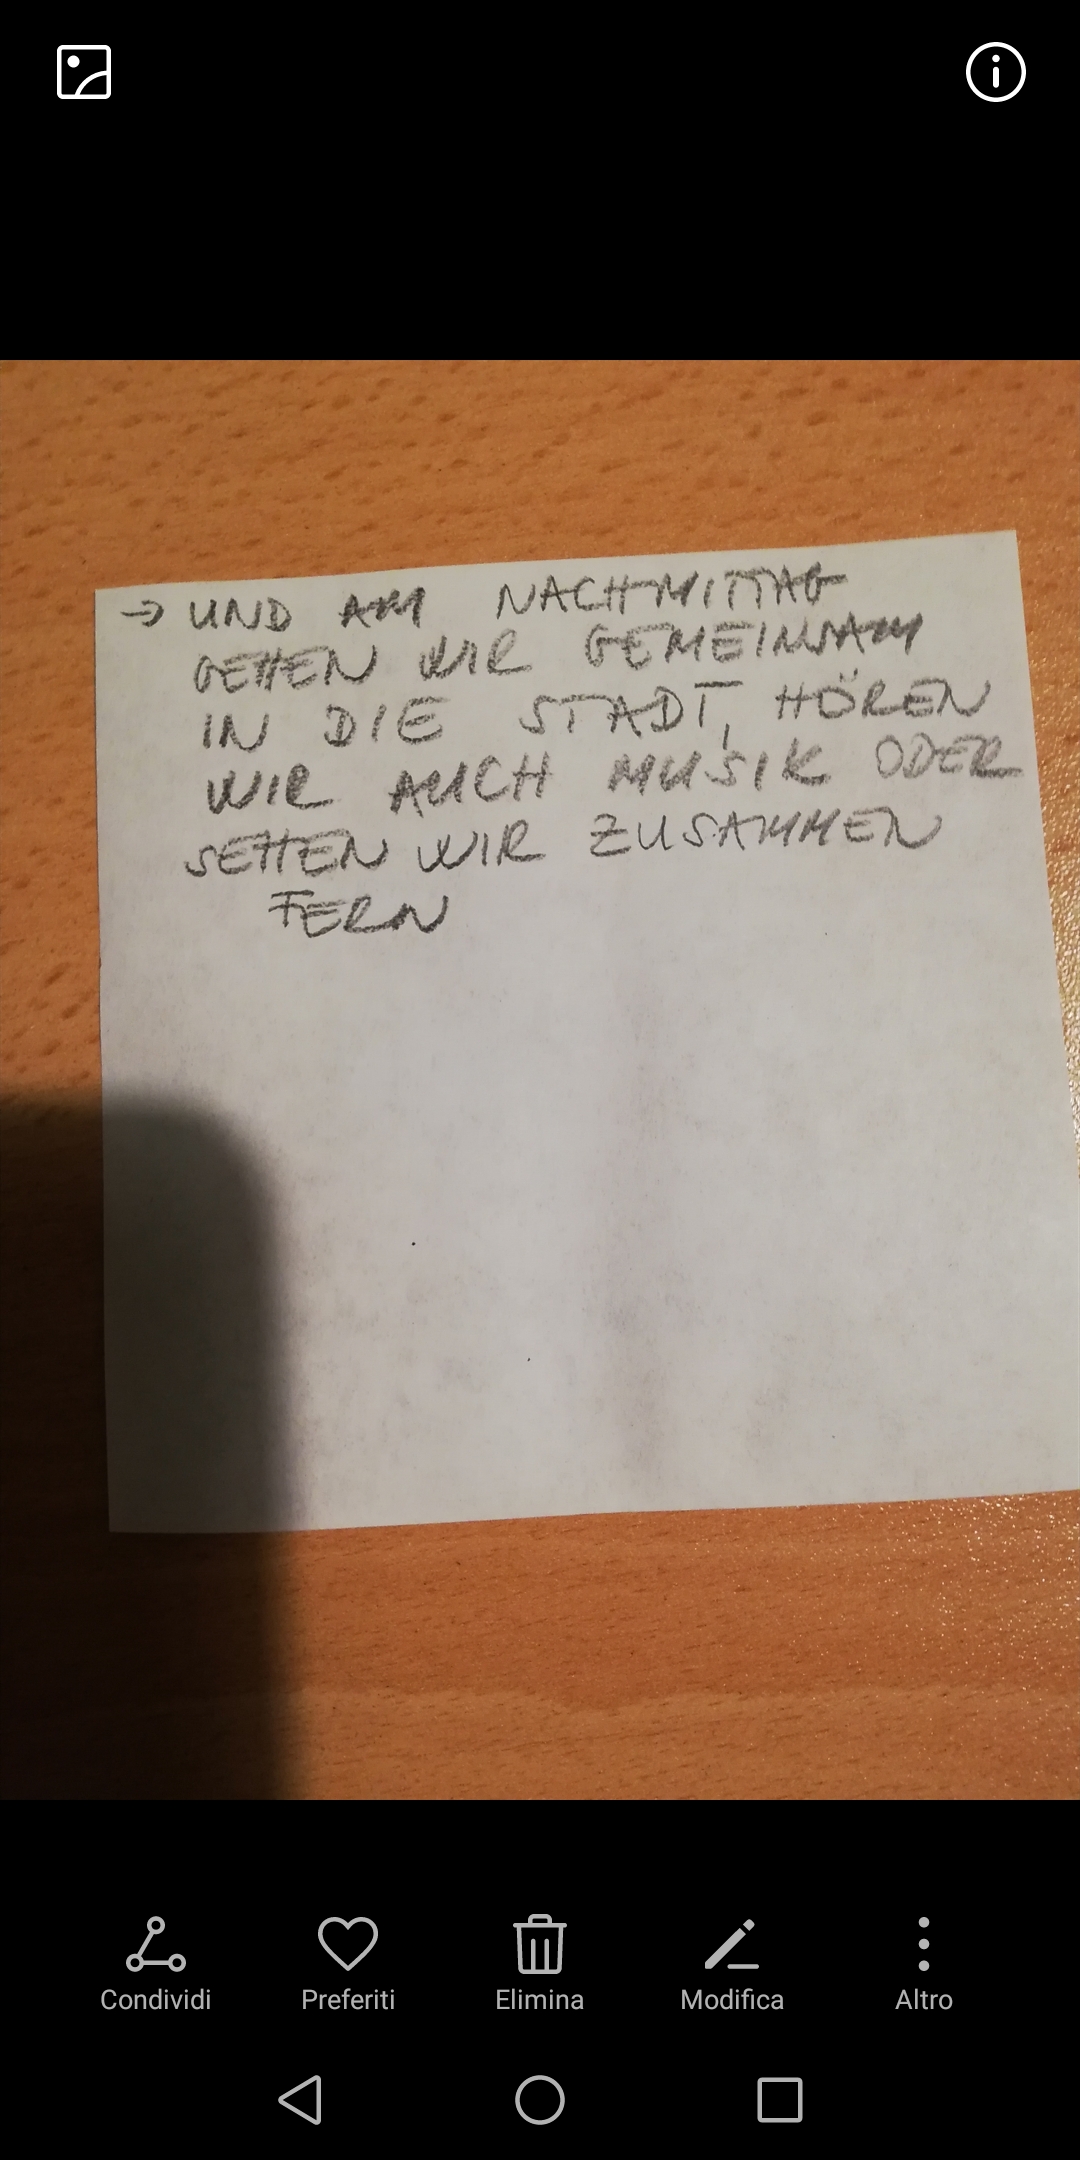 → UND AM NACHMITTAG
GEHEN WIR GEMEINSAM
IN DIE STADT, HÖREN
WIR AUCH MUSIK ODER
SEHEN WIR ZUSAMMEN
FERN
Condividi
Preferiti
Elimina
Modifica
Altro